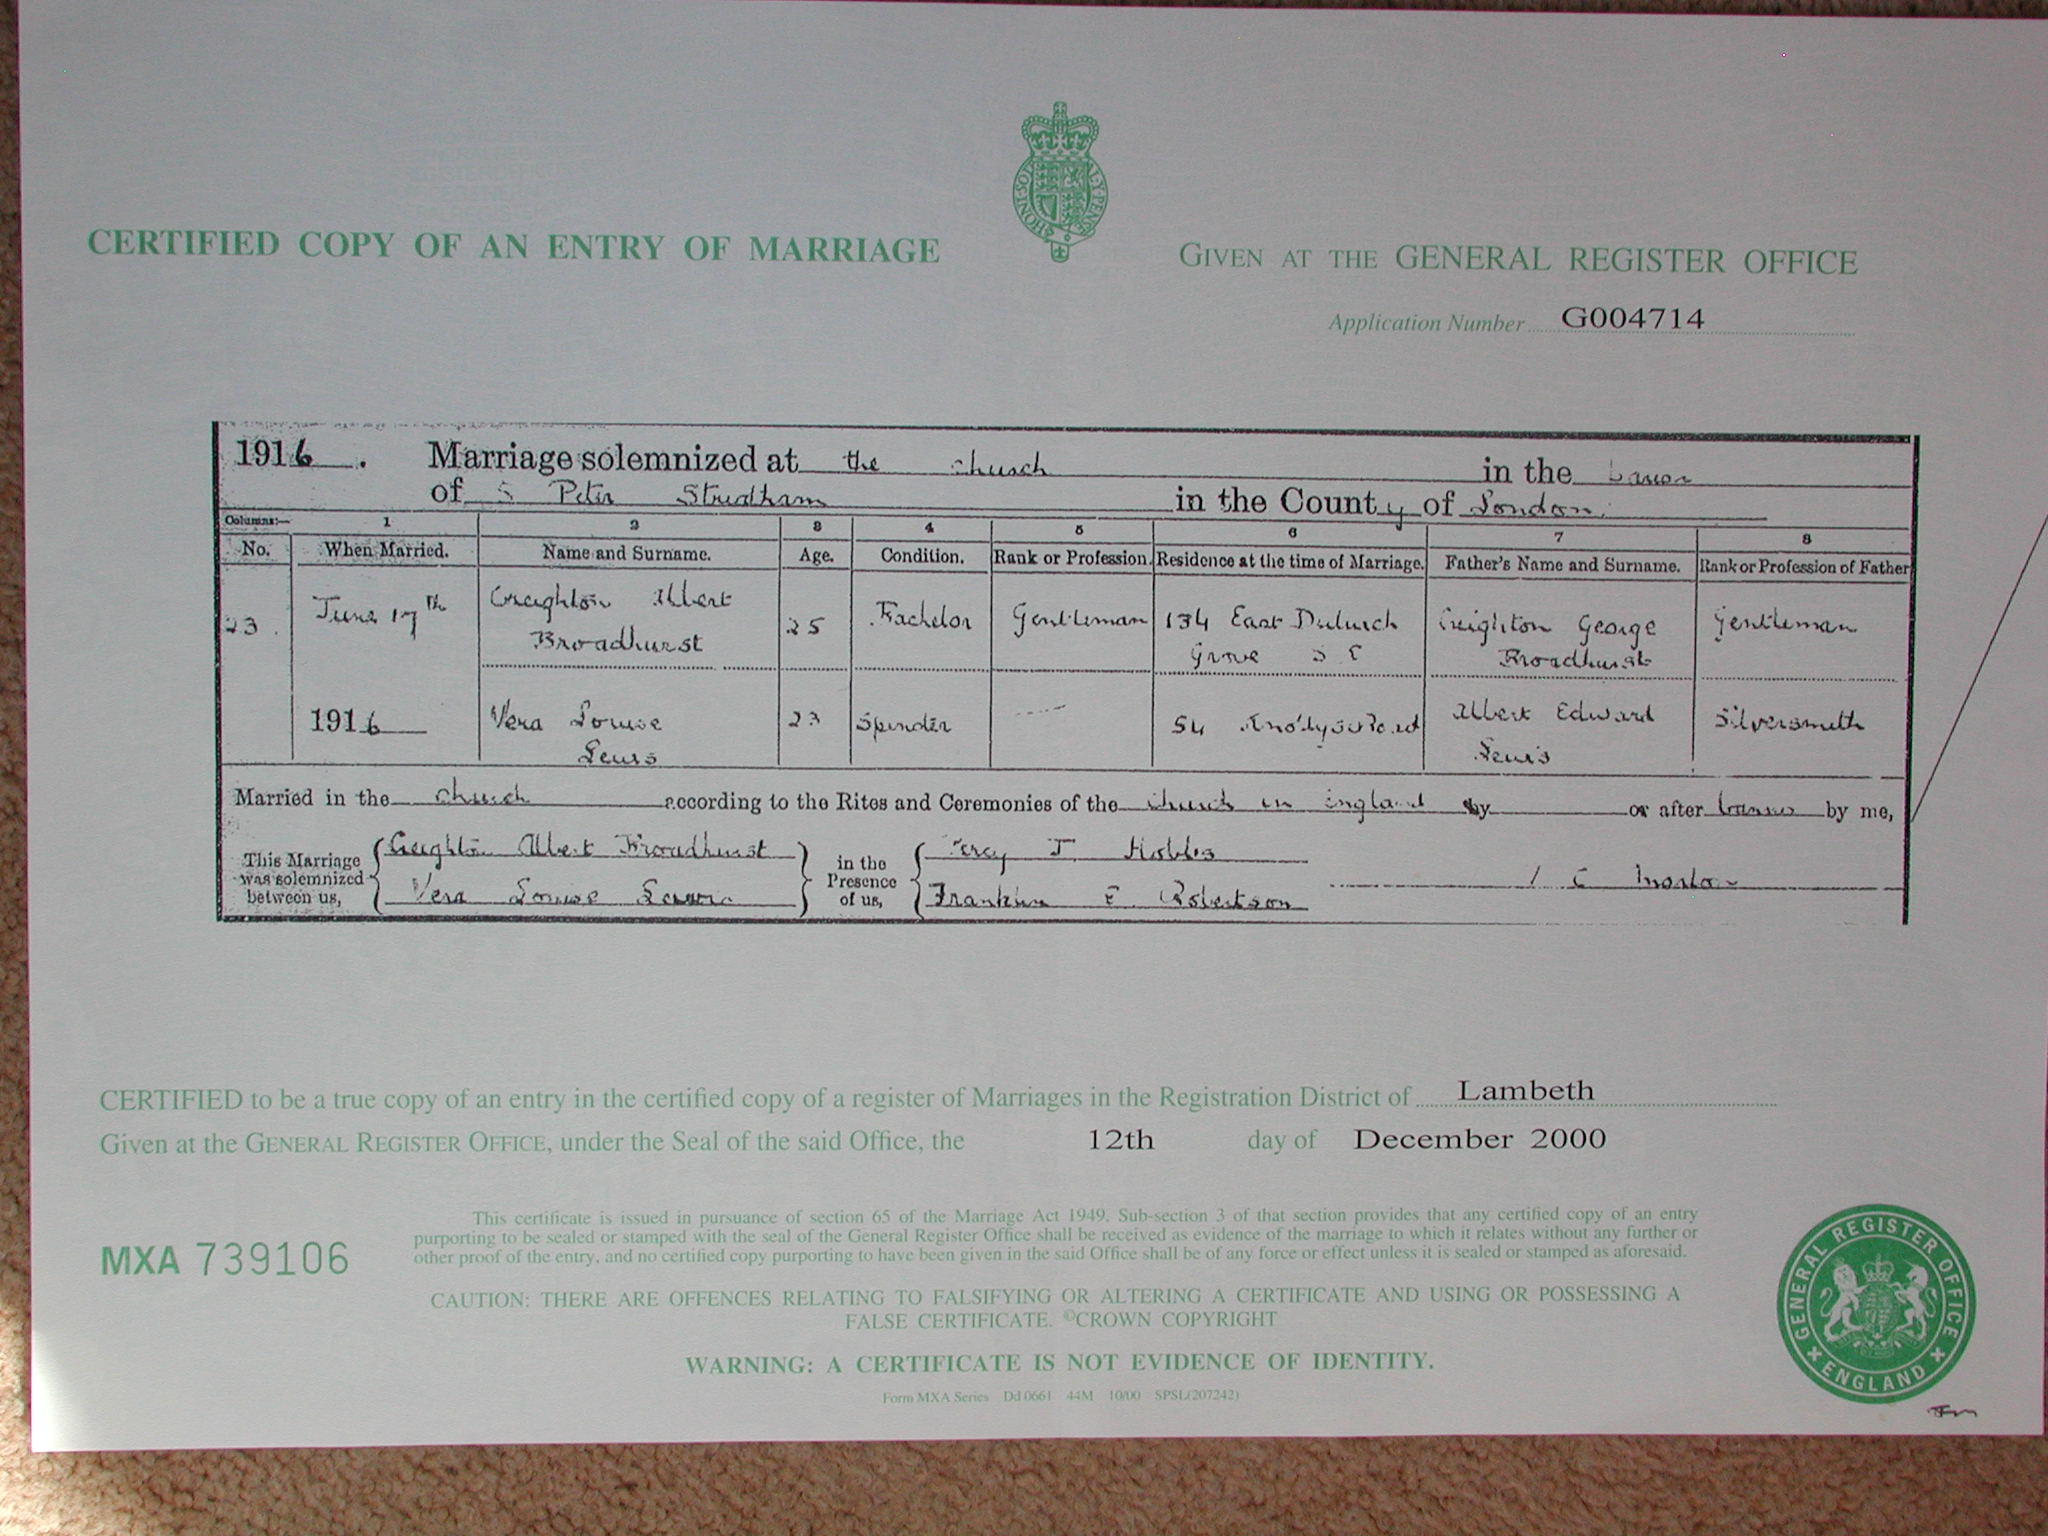 CERTIFIED COPY OF AN ENTRY OF MARRIAGE
GIVEN AT THE GENERAL REGISTER OFFICE
Application Number G004714
1916. Marriage solemnized at the church in the
of S Peter Streatham in the County of London.
Columns:— 1 2 3 4 5 6 7 8
No. When Married. Name and Surname. Age. Condition. Rank or Profession. Residence at the time of Marriage. Father's Name and Surname. Rank or Profession of Father
23. June 17th Creighton Albert Broadhurst 25 Bachelor Gentleman 134 East Dulwich Grove S E Creighton George Broadhurst Gentleman
1916 Vera Louise Lewis 23 Spinster 54 Albert Edward Lewis Silversmith
Married in the church according to the Rites and Ceremonies of the church in England by or after banns by me,
This Marriage was solemnized between us, Creighton Albert Broadhurst in the Presence of us, Percy J. Hobbs
Vera Louise Lewis Franklin E. Robertson
CERTIFIED to be a true copy of an entry in the certified copy of a register of Marriages in the Registration District of Lambeth
Given at the GENERAL REGISTER OFFICE, under the Seal of the said Office, the 12th day of December 2000
This certificate is issued in pursuance of section 65 of the Marriage Act 1949. Sub-section 3 of that section provides that any certified copy of an entry
purporting to be sealed or stamped with the seal of the General Register Office shall be received as evidence of the marriage to which it relates without any further or
other proof of the entry, and no certified copy purporting to have been given in the said Office shall be of any force or effect unless it is sealed or stamped as aforesaid.
MXA 739106
CAUTION: THERE ARE OFFENCES RELATING TO FALSIFYING OR ALTERING A CERTIFICATE AND USING OR POSSESSING A
FALSE CERTIFICATE. ©CROWN COPYRIGHT
WARNING: A CERTIFICATE IS NOT EVIDENCE OF IDENTITY.
Form MXA Series Dd 0661 44M 10/00 SPSL(207242)
GENERAL REGISTER OFFICE
ENGLAND